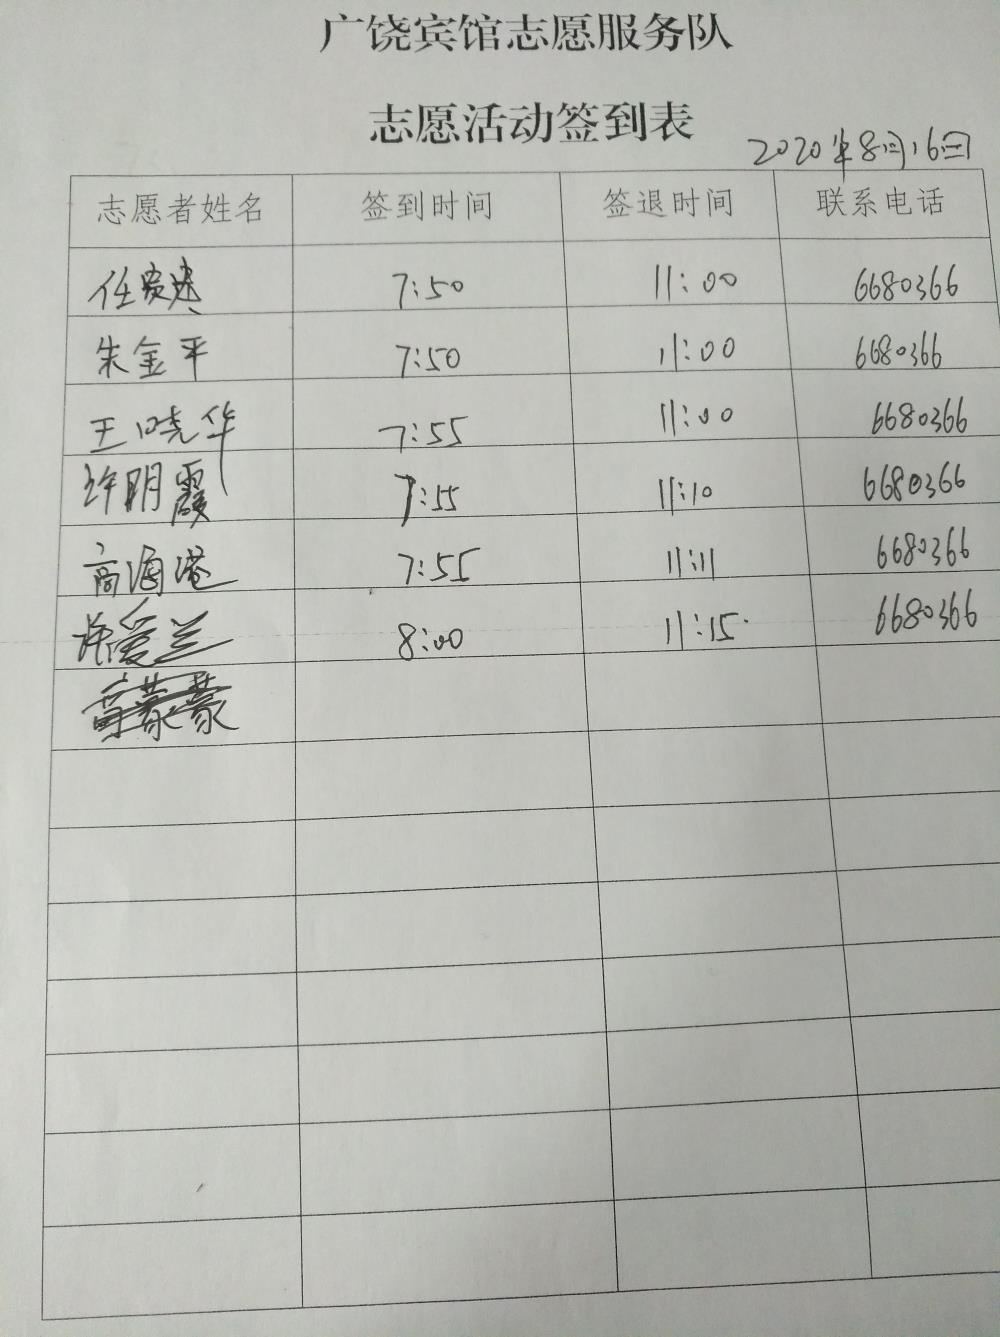 广饶宾馆志愿服务队
志愿活动签到表
2020年8月16日
志愿者姓名 签到时间 签退时间 联系电话
任 7:50 11:00 6680366
朱金平 7:50 11:00 6680366
王晓华 7:55 11:00 6680366
许明霞 7:55 11:10 6680366
高海港 7:55 11:11 6680366
许爱兰 8:00 11:15 6680366